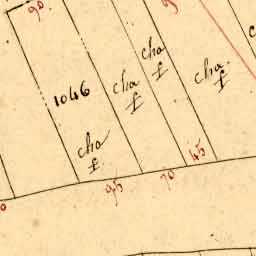 90
1046
cha
f
cha
f
cha
f
cha
f
95
70
45